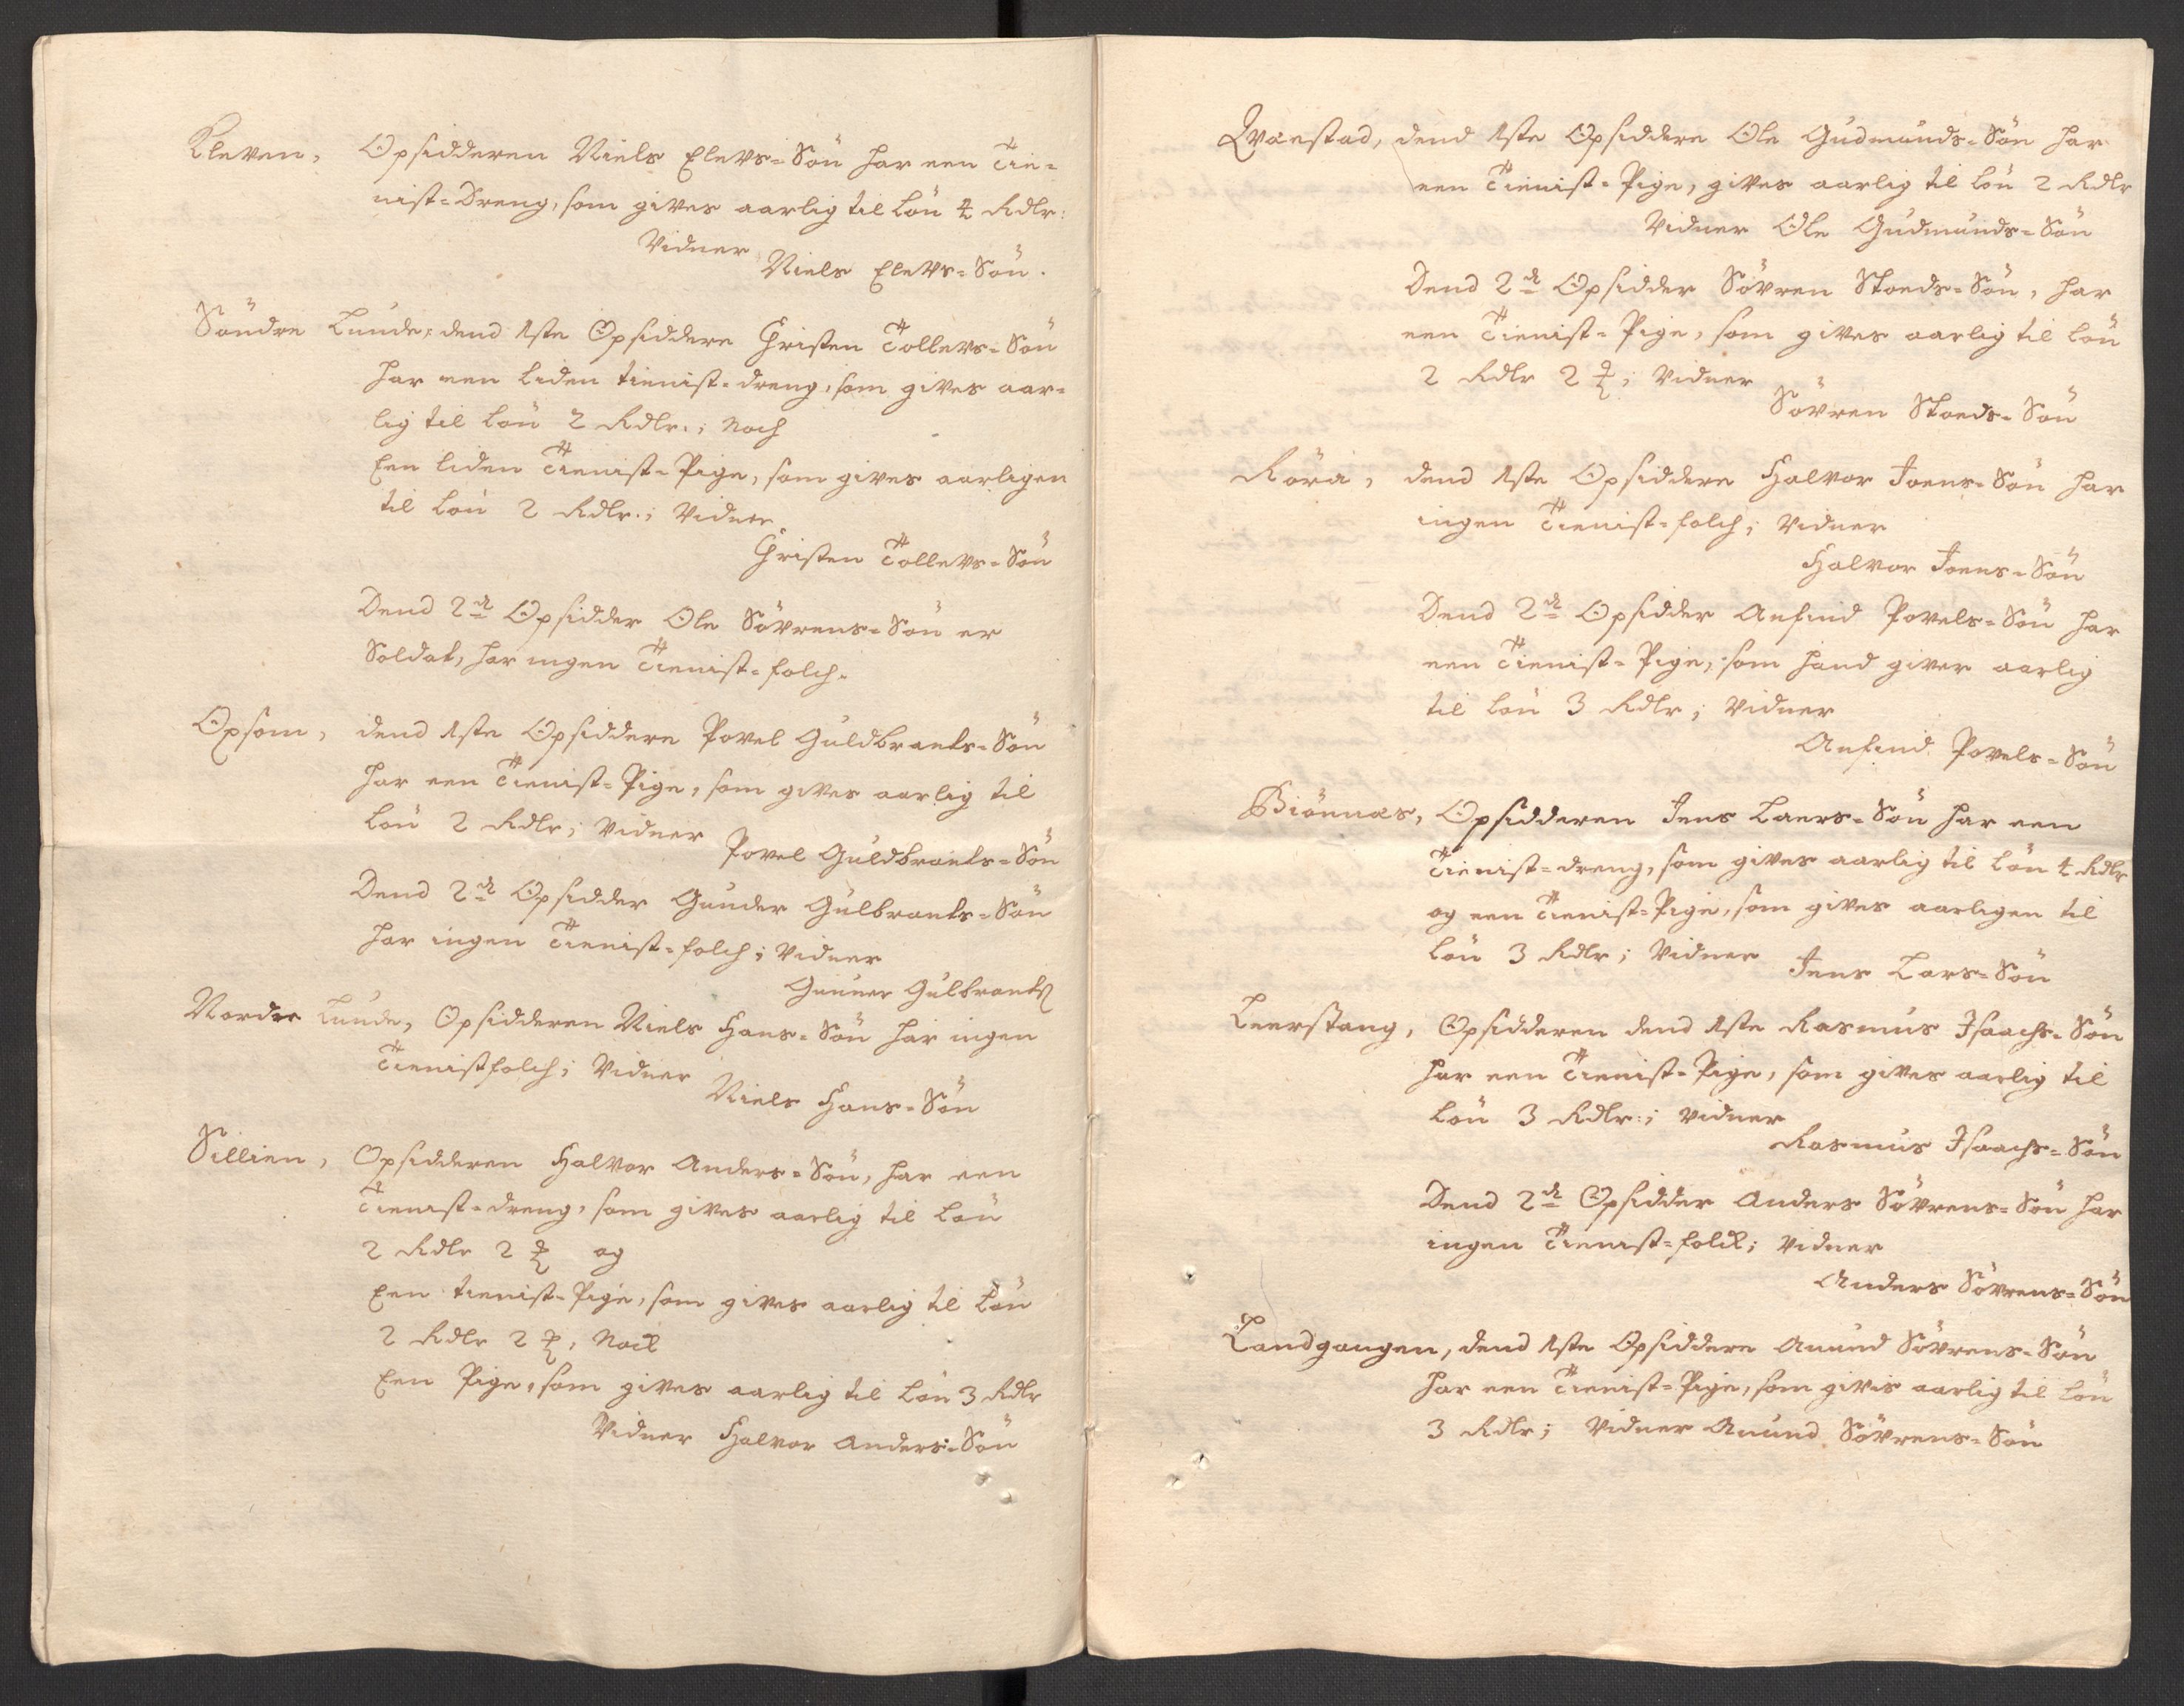 Kleven, Opsidderen Niels Elevs-Sön har een Tie-
nist-Dreng, som gives aarlig til Lön 4 Rdlr:
Vidner
Niels Elevs-Sön.
Söndre Lunde, dend 1ste Opsiddere Christen Tollevs-Sön
har een liden tienist-dreng, som gives aar-
lig til Lön 2 Rdlr.; Noch
Een liden Tienist-Pige, som gives aarligen
til Lön 2 Rdlr.; Vidner
Christen Tollevs-Sön
Dend 2de Opsidder Ole Sövrens-Sön er
Soldat, har ingen Tienist-folch.
Opsom, dend 1ste Opsiddere Povel Guldbrants-Sön
har een Tienist-Pige, som gives aarlig til
Lön 2 Rdlr; Vidner
Povel Guldbrants-Sön
Dend 2de Opsidder Gunder Gulbrants-Sön
har ingen Tienist-folch; Vidner
Gunner Gulbrants
Nordre Lunde, Opsidderen Niels Hans-Sön har ingen
Tienistfolch; Vidner
Niels Hans-Sön
Sillien, Opsidderen Halvor Anders-Sön, har een
Tienist-dreng, som gives aarlig til Lön
2 Rdlr 2 og
Een tienist-Pige, som gives aarlig til Lön
2 Rdlr 2, Noch
Een Pige, som gives aarlig til Lön 3 Rdlr
Vidner Halvor Anders-Sön
Qvæstad, dend 1ste Opsiddere Ole Gudmunds-Sön har
een Tienist-Pige, gives aarlig til Lön 2 Rdlr
Vidner Ole Gudmunds-Sön
Dend 2de Opsidder Sövren Stoeds-Sön, har
een Tienist-Pige, som gives aarlig til Lön
2 Rdlr 2; Vidner
Sövren Stoeds-Sön
Röra, dend 1ste Opsiddere Halvor Joens-Sön har
ingen Tienist-folch; Vidner
Halvor Joens-Sön
Dend 2de Opsidder Anfind Povels-Sön har
een Tienist-Pige, som hand giver aarlig
til Lön 3 Rdlr; Vidner
Anfind Povels-Sön
Biönnes, Opsidderen Jens Laers-Sön har een
Tienist-dreng, som gives aarlig til Lön 4 Rdlr
og een Tienist-Pige, som gives aarligen til
Lön 3 Rdlr; Vidner
Jens Lars-Sön
Leerstang, Opsidderen dend 1ste Rasmus Isaachs-Sön
har een Tienist-Pige, som gives aarlig til
Lön 3 Rdlr:; Vidner
Rasmus Isaachs-Sön
Dend 2de Opsidder Anders Sövrens-Sön har
ingen Tienist-folck; Vidner
Anders Sövrens-Sön
Landgangen, dend 1ste Opsiddere Anund Sövrens-Sön
har een Tienist-Pige, som givis aarlig til Lön
3 Rdlr; Vidner Anund Sövrens-Sön